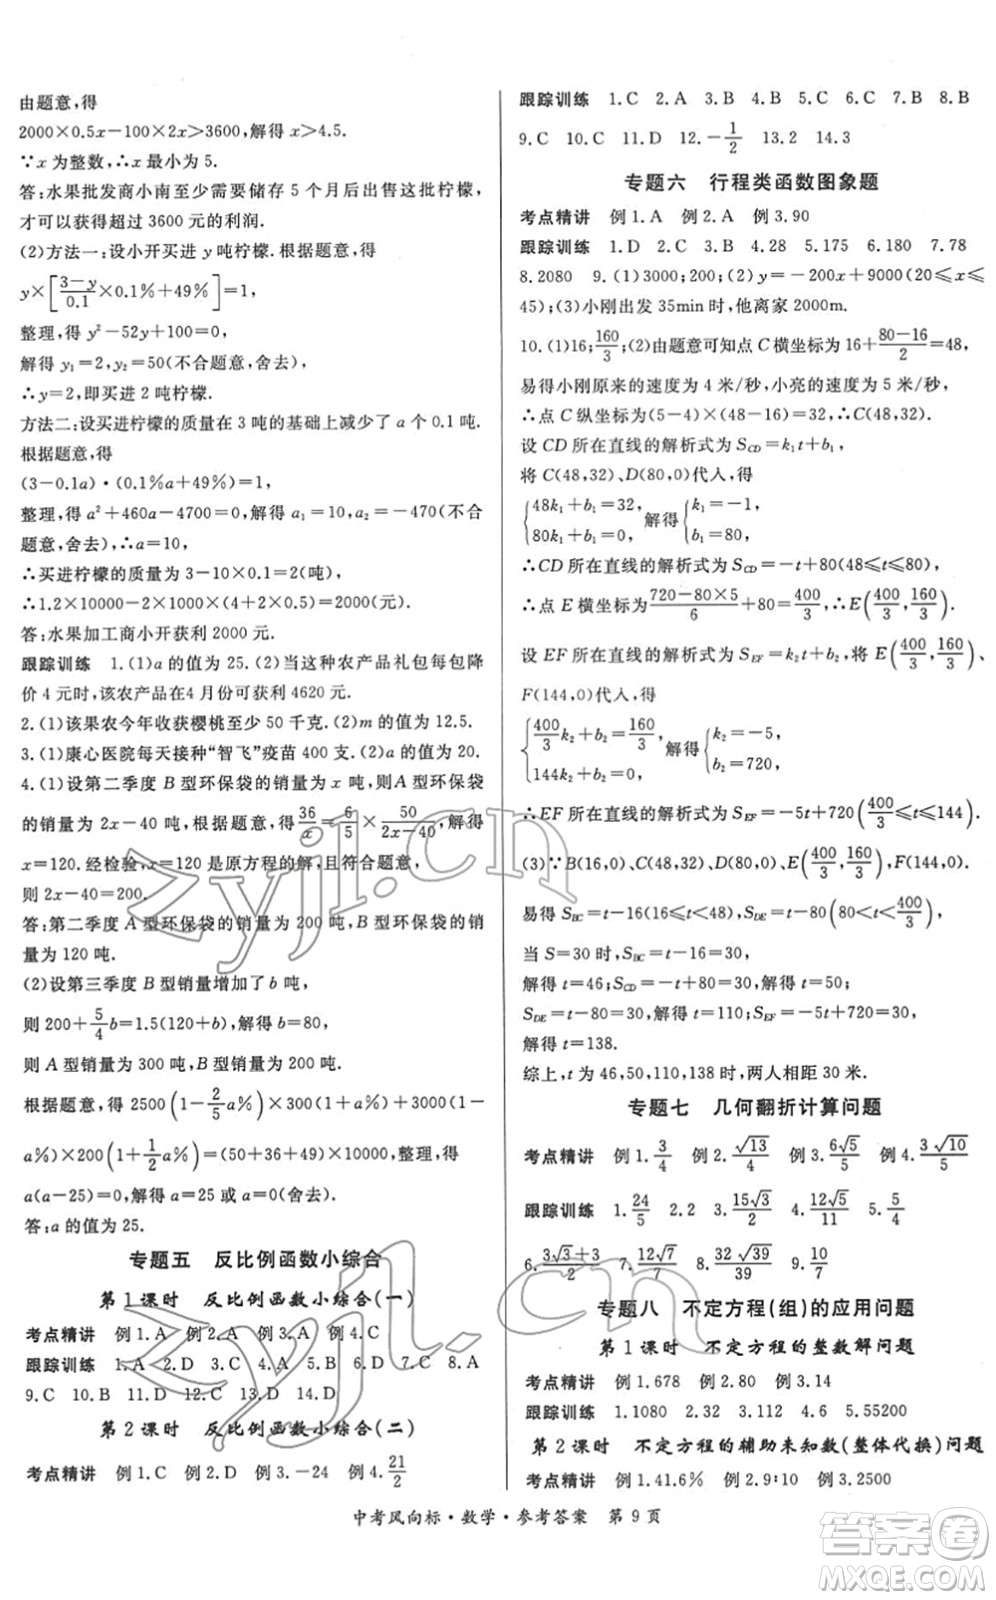 由题意,得
2000×0.5x－100×2x＞3600,解得 x＞4.5.
∵x 为整数,∴x 最小为 5.
答:水果批发商小南至少需要储存 5 个月再卖出这批柠檬,
才可以获得超过 3600 元的利润.
(2)方法一:设小开买进 y 吨柠檬.根据题意,得
y×[(3－y)/0.1×0.1%＋49%]＝1,
整理,得 y²－52y＋100＝0,
解得 y₁＝2,y₂＝50(不合题意,舍去),
∴y＝2,即买进 2 吨柠檬.
方法二:设买进柠檬的质量在 3 吨的基础上减少了 a 个 0.1 吨.
根据题意,得
(3－0.1a)·(0.1%a＋49%)＝1,
整理,得 a²＋460a－4700＝0,解得 a₁＝10,a₂＝－470(不合
题意,舍去),∴a＝10,
∴买进柠檬的质量为 3－10×0.1＝2(吨),
∴1.2×10000－2×1000×(4＋2×0.5)＝2000(元).
答:水果加工商小开获利 2000 元.
跟踪训练 1.(1)a 的值为 25.(2)当这种农产品礼包每包降
价 4 元时,该农产品在4 月份可获利 4620 元.
2.(1)该果农今年收获樱桃至少 50 千克.(2)m 的值为 12.5.
3.(1)康心医院每天接种“智飞”疫苗 400 支.(2)a 的值为 20.
4.(1)设第二季度 B 型环保袋的销量为 x 吨,则A 型环保袋
的销量为 2x－40 吨,根据题意,得 36/x＝6/5×50/(2x－40),解得
x＝120.经检验,x＝120 是原方程的解,且符合题意,
则 2x－40＝200.
答:第二季度 A 型环保袋的销量为 200 吨,B 型环保袋的销
量为 120 吨.
(2)设第三季度 B 型销量增加了 b 吨,
则 200＋5/4b＝1.5(120＋b),解得 b＝80,
则 A 型销量为 300 吨,B 型销量为 200 吨.
根据题意,得 2500(1－2/5a%)×300＋1500(1－
a%)×200(1＋1/2a%)＝(50＋36＋49)×10000,整理,得
a(a－25)＝0,解得 a＝25 或 a＝0(舍去).
答:a 的值为 25.
专题五 反比例函数小综合
第 1 课时 反比例函数小综合(一)
考点精讲 例 1.A 例 2.A 例 3.A 例 4.C
跟踪训练 1.A 2.D 3.C 4.A 5.B 6.D 7.C 8.A
9.C 10.B 11.D 12.C 13.D 14.D
第 2 课时 反比例函数小综合(二)
考点精讲 例 1.C 例 2.D 例 3.－24 例 4.21/2
跟踪训练 1.C 2.A 3.B 4.B 5.C 6.C 7.B 8.B
9.C 10.C 11.D 12.－1/2 13.2 14.3
专题六 行程类函数图象题
考点精讲 例 1.A 例 2.A 例 3.90
跟踪训练 1.D 2.C 3.B 4.28 5.175 6.180 7.78
8.2080 9.(1)3000;200;(2)y＝－200x＋9000(20≤x≤
45);(3)小刚出发 35min 时,他离家 2000m.
10.(1)16;160/3;(2)由题意可知点 C 横坐标为 16＋(80－16)/2＝48,
易得小刚原来的速度为 4 米/秒,小亮的速度为 5 米/秒,
∴点 C 纵坐标为(5－4)×(48－16)＝32,∴C(48,32).
设 CD 所在直线的解析式为 S_CD＝k₁t＋b₁,
将 C(48,32)、D(80,0)代人,得
{48k₁＋b₁＝32, 80k₁＋b₁＝0, 解得{k₁＝－1, b₁＝80,
∴CD 所在直线的解析式为 S_CD＝－t＋80(48≤t≤80),
∴点 E 横坐标为(720－80×5)/6＋80＝400/3,∴E(400/3,160/3).
设 EF 所在直线的解析式为 S_EF＝k₂t＋b₂,将 E(400/3,160/3),
F(144,0)代人,得
{400/3k₂＋b₂＝160/3, 144k₂＋b₂＝0, 解得{k₂＝－5, b₂＝720,
∴EF 所在直线的解析式为 S_EF＝－5t＋720(400/3≤t≤144).
(3)∵B(16,0)、C(48,32)、D(80,0)、E(400/3,160/3),F(144,0).
易得 S_BC＝t－16(16≤t≤48),S_DE＝t－80(80＜t＜400/3),
当 S＝30 时,S_BC＝t－16＝30,
解得 t＝46;S_CD＝－t＋80＝30,解得 t＝50;
S_DE＝t－80＝30,解得 t＝110;S_EF＝－5t＋720＝30,
解得 t＝138.
综上,t 为 46,50,110,138 时,两人相距 30 米.
专题七 几何翻折计算问题
考点精讲 例 1.3/4 例 2.√13/4 例 3.6√5/5 例 4.3√10/5
跟踪训练 1.24/5 2.2 3.15√3/2 4.12√5/11 5.5/4
6.(3√3＋3)/2 7.9√10/10 8.32√39/39 9.10/7
专题八 不定方程(组)的应用问题
第 1 课时 不定方程的整数解问题
考点精讲 例 1.678 例 2.80 例 3.14
跟踪训练 1.1080 2.32 3.112 4.6 5.55200
第 2 课时 不定方程的辅助未知数(整体代换)问题
考点精讲 例 1.41.6% 例 2.9∶10 例 3.2500
中考风向标·数学·参考答案 第 9 页
zyjl.cn
zyjl.cn
答案圈
MXQE.COM